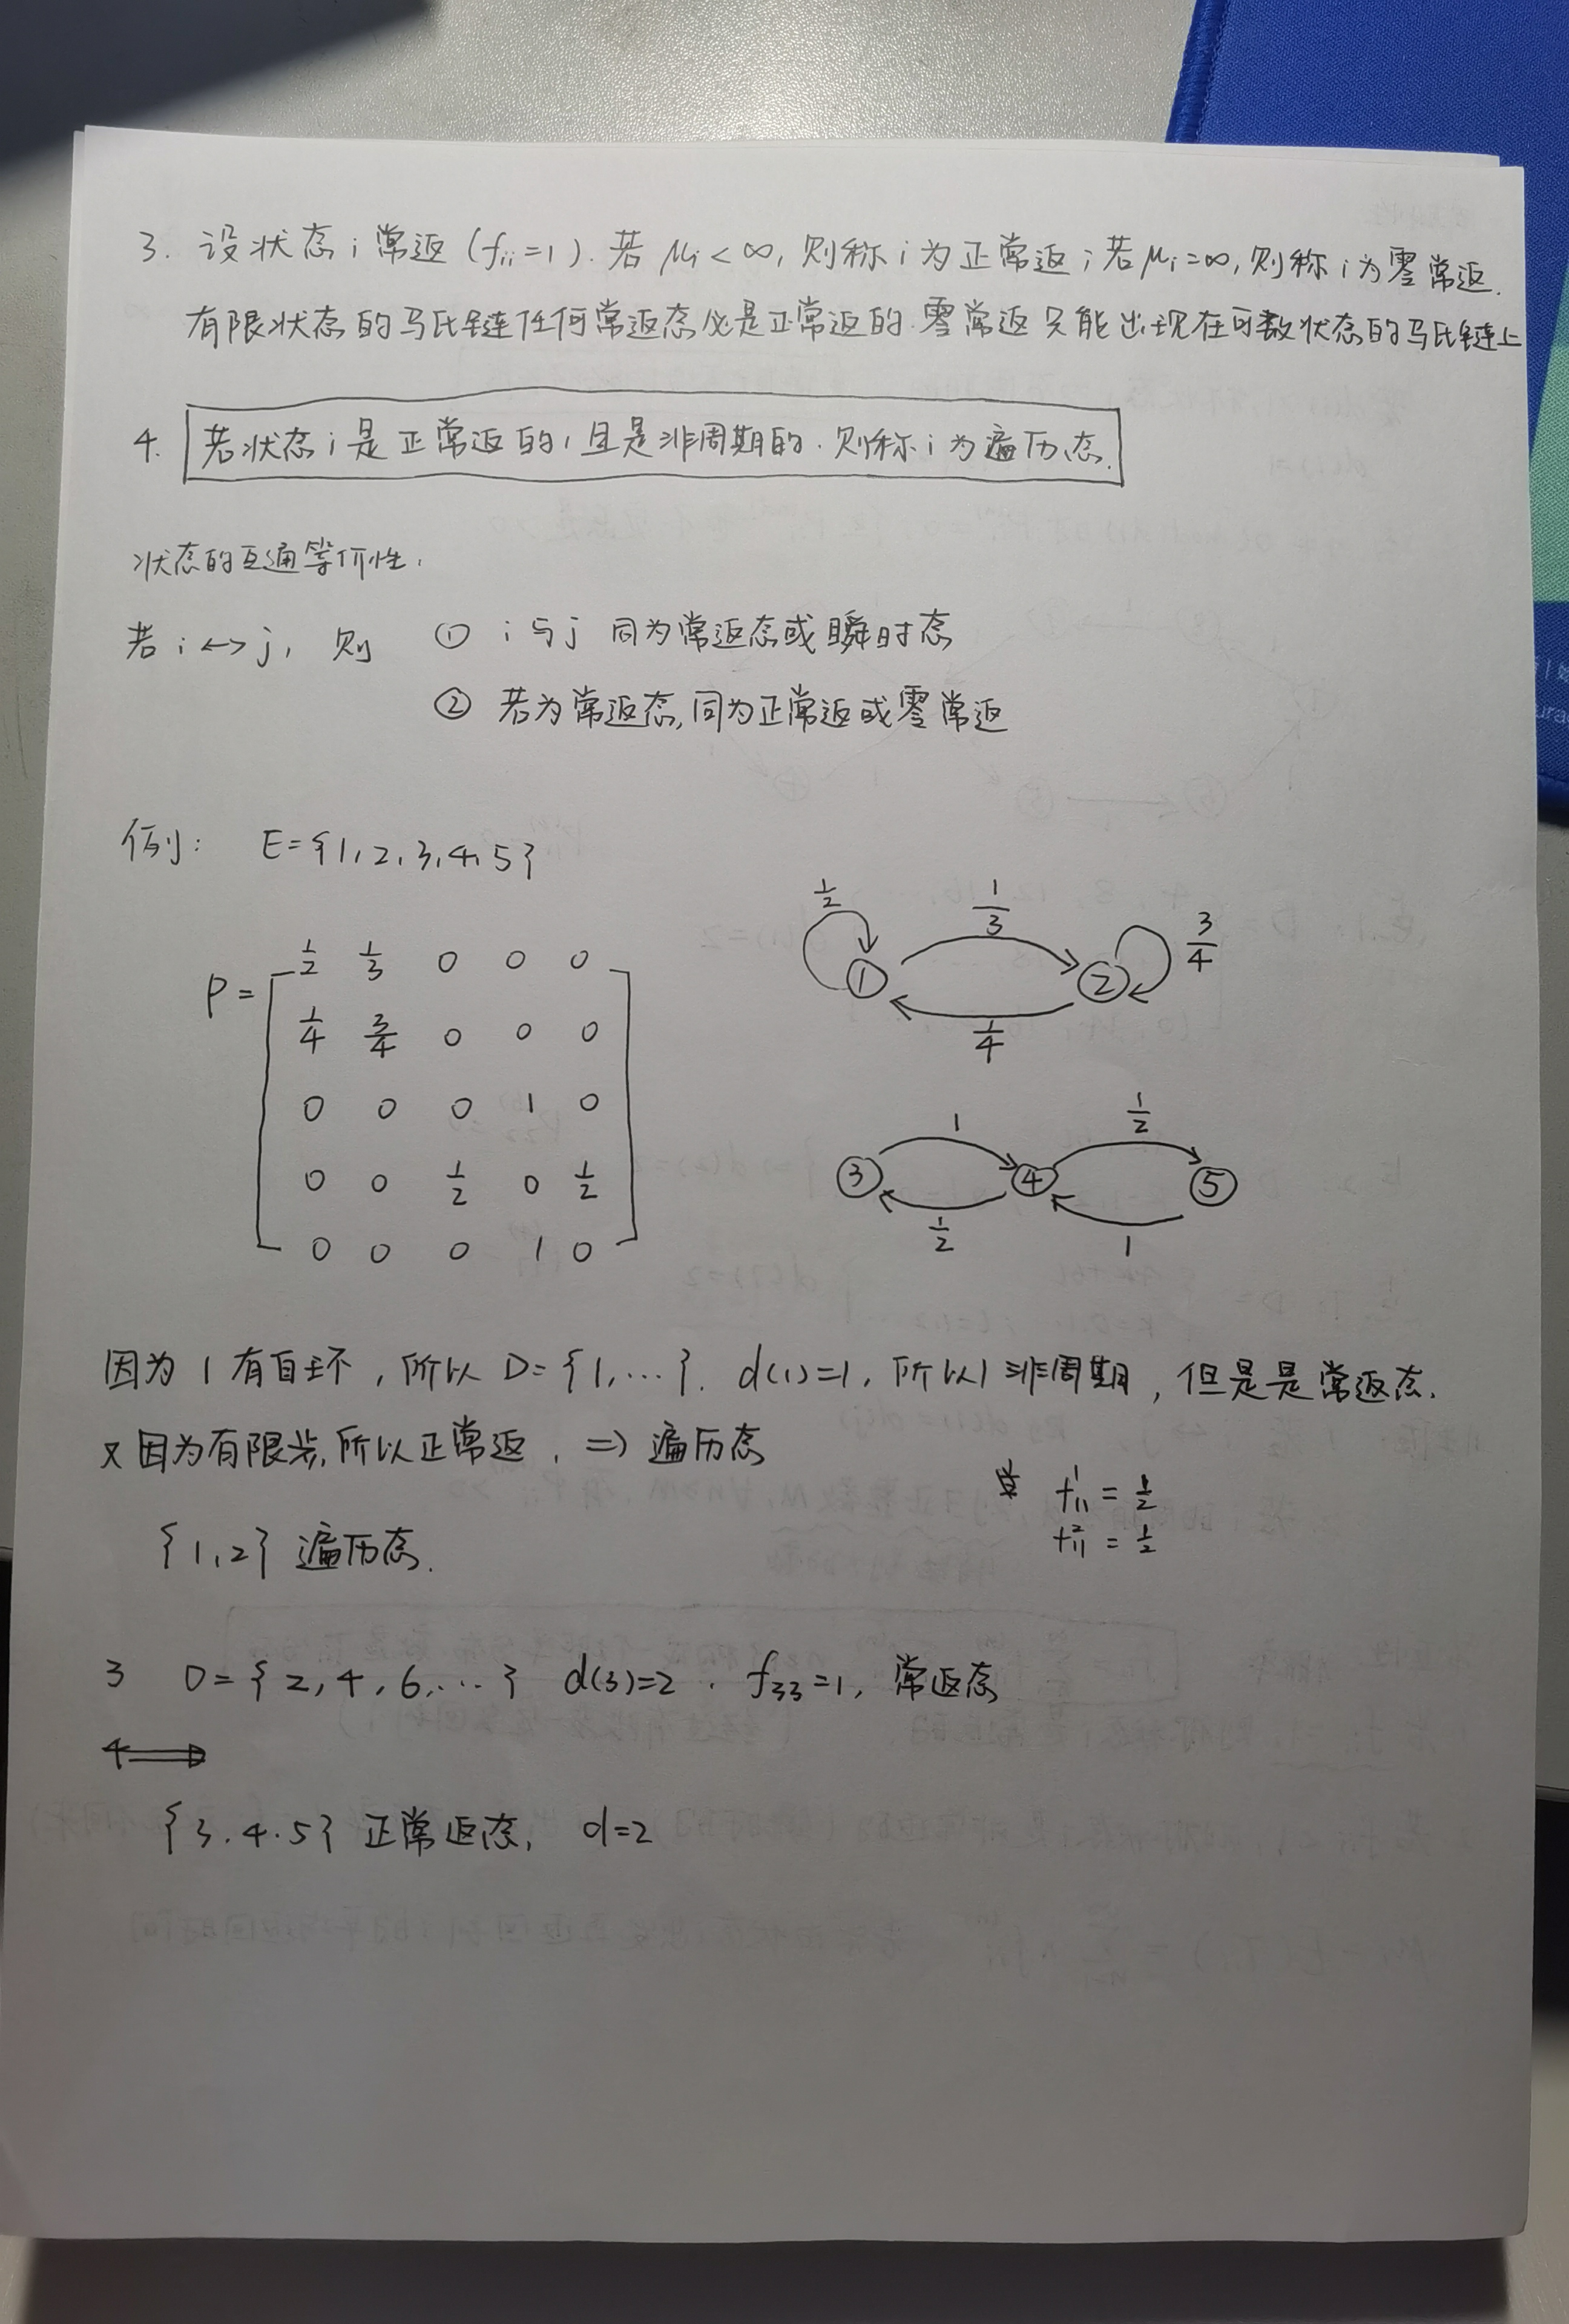 3. 设状态 i 常返 (fᵢᵢ=1). 若 μᵢ < ∞, 则称 i 为正常返; 若 μᵢ=∞, 则称 i 为零常返.
有限状态的马氏链任何常返态必是正常返的. 零常返只能出现在可数状态的马氏链上
4. 若状态 i 是正常返的, 且是非周期的. 则称 i 为遍历态.
状态的互通等价性.
若 i ↔ j, 则 ① i 与 j 同为常返态或瞬时态
② 若为常返态, 同为正常返或零常返
例: E={1,2,3,4,5}
P=
1/2 1/3 0 0 0
1/4 3/4 0 0 0
0 0 0 1 0
0 0 1/2 0 1/2
0 0 0 1 0
1/2 1/3 3/4
① ②
1/4
1 1/2
③ ④ ⑤
1/2 1
因为 1 有自环, 所以 D={1,…}. d(1)=1, 所以 1 非周期, 但是是常返态.
又因为有限步, 所以正常返. ⇒ 遍历态
f₁₁¹ = 1/2
f₁₁² = 1/2
{1,2} 遍历态.
3 D={2,4,6,…} d(3)=2. f₃₃=1, 常返态
{3.4.5} 正常返态, d=2